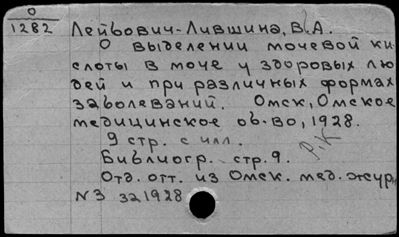 0
1282
Лейбович-Лившина, В.А.
О выделении мочевой ки-
слоты в моче у здоровых лю
дей и при различных формах
заболеваний. Омск, Омское
медицинское об-во, 1928.
9 стр. с илл.
Библиогр. стр. 9.
Р.К
Отд. отт. из Омск. мед. журн
№3 за 1928